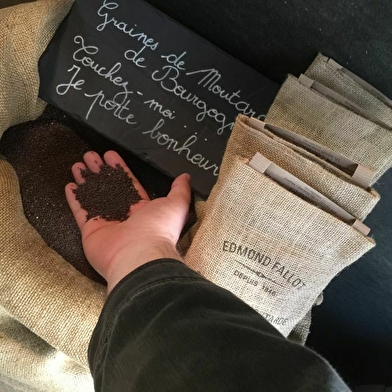 Graines de Moutarde
de Bourgogne
Touchez-moi...
Je porte bonheur
EDMOND FALLOT
DEPUIS 1840